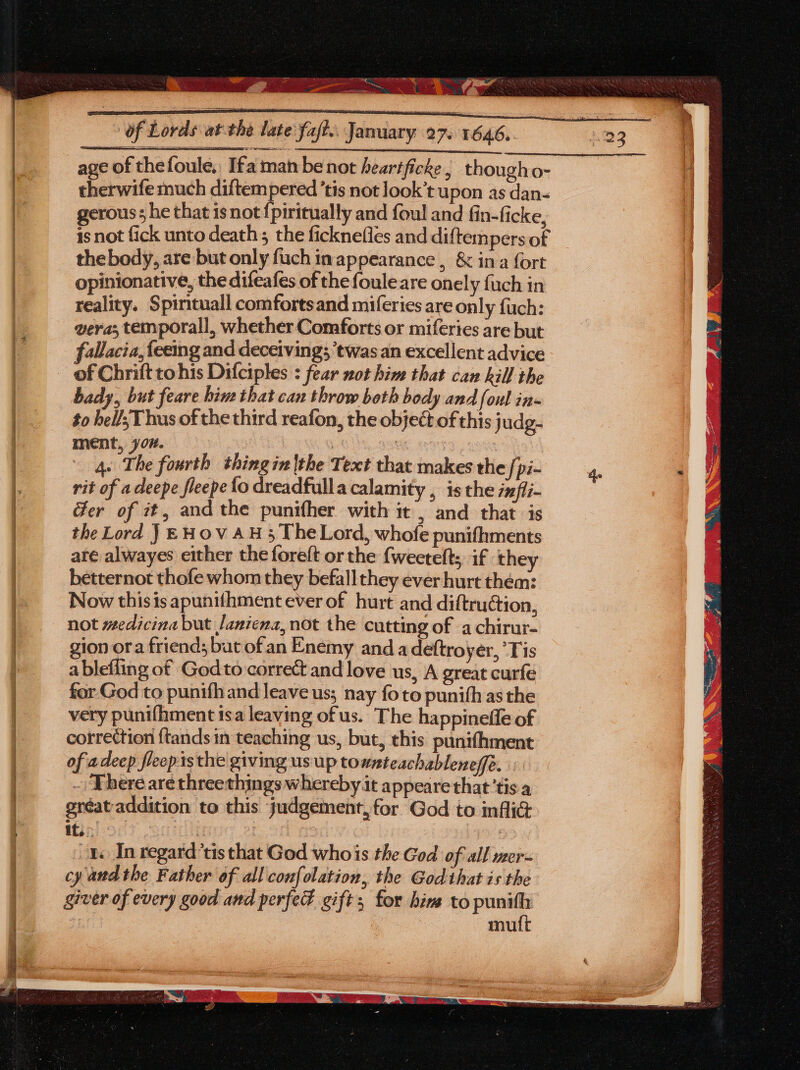 of Lords at the late faſt. January 27. 1646. 23
age of the ſoule, If a man be not heartſicke, though o-
therwiſe much diſtempered 'tis not look't upon as dan-
gerous; he that is not ſpiritually and ſoul and ſin-ſicke,
is not ſick unto death; the ſickneſſes and diſtempers of
the body, are but only ſuch in appearance, & in a ſort
opinionative, the diſeaſes of the ſoule are onely ſuch in
reality. Spirituall comforts and miſeries are only ſuch:
vera; temporall, whether Comforts or miſeries are but
fallacia, ſeeing and deceiving; 'twas an excellent advice
of Chriſt to his Diſciples : fear not him that can kill the
bady, but feare him that can throw both body and ſoul in-
to hell; Thus of the third reaſon, the object of this judg-
ment, you.
4. The fourth thing in the Text that makes the ſpi- 4.
rit of a deepe ſleepe ſo dreadfull a calamity, is the infli-
cter of it, and the puniſher with it, and that is
the Lord JEHOVAH; The Lord, whoſe puniſhments
are alwayes either the ſoreſt or the ſweeteſt; if they
better not thoſe whom they befall they ever hurt them:
Now this is a puniſhment ever of hurt and diſtruction,
not medicina but laniena, not the cutting of a chirur-
gion or a friend; but of an Enemy and a deſtroyer, 'Tis
a bleſſing of God to correct and love us, A great curſe
for God to puniſh and leave us; nay ſo to puniſh as the
very puniſhment is a leaving of us. The happineſſe of
correction ſtands in teaching us, but, this puniſhment
of a deep ſleep is the giving us up to unteachableneſſe.
There are three things whereby it appeare that 'tis a
great addition to this judgement, for God to inflict
it.
1. In regard 'tis that God who is the God of all mer-
cy and the Father of all conſolation, the God that is the
giver of every good and perfect gift; for him to puniſh
muſt